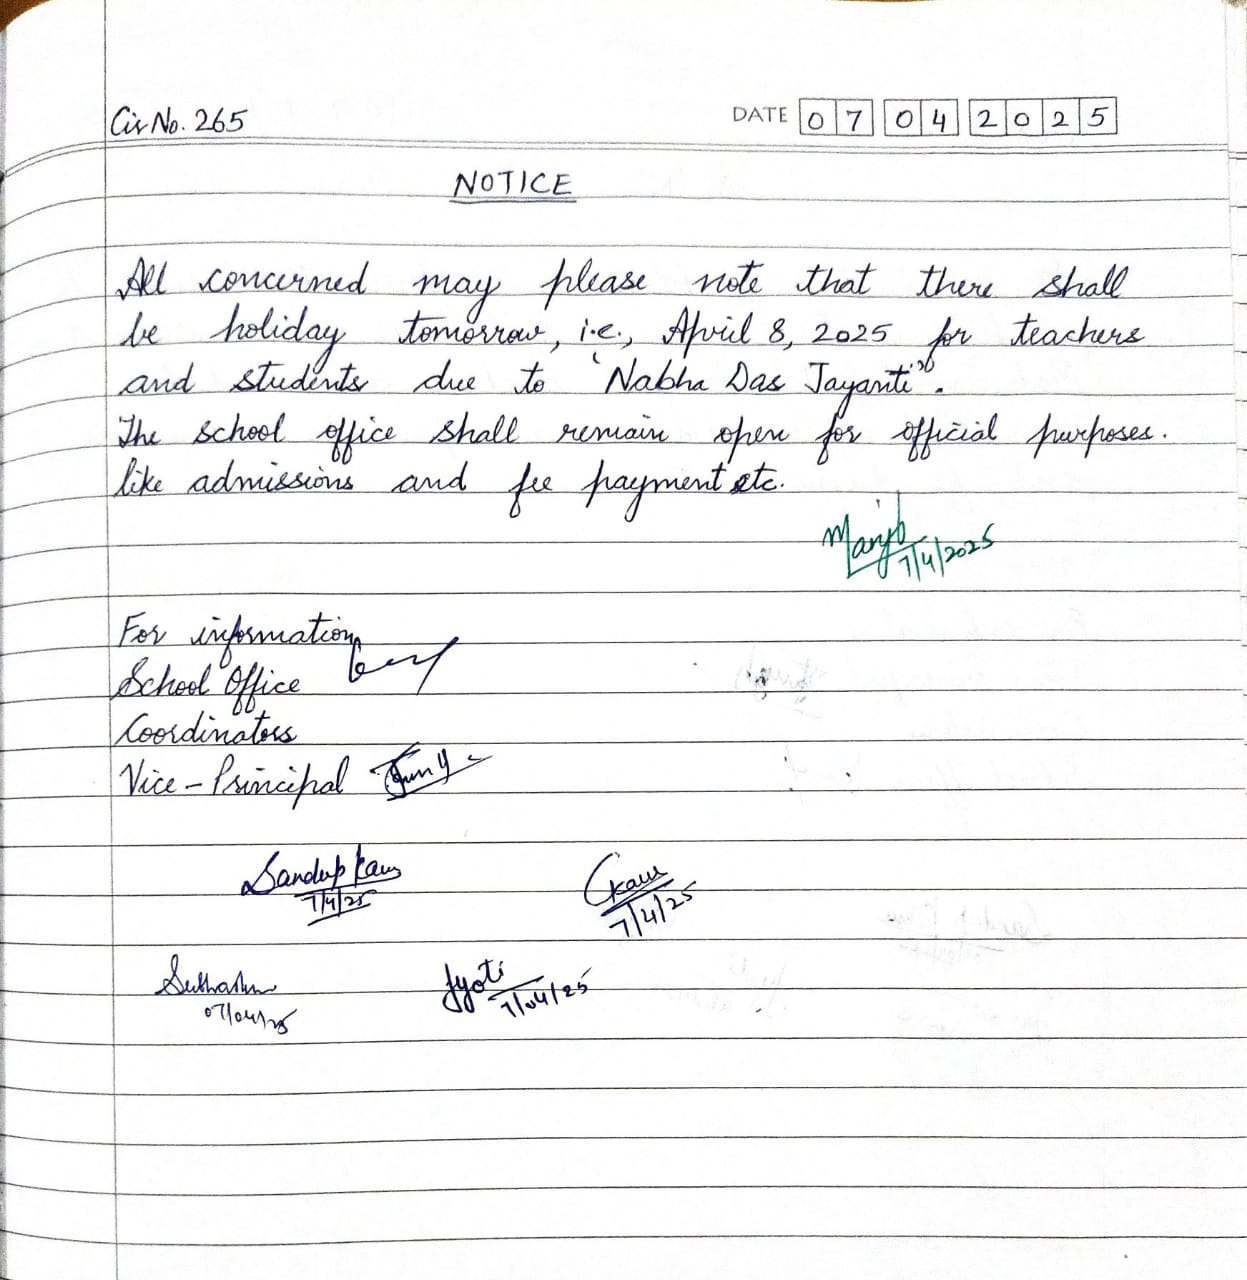 Cir No. 265
DATE 07 04 2025
NOTICE
All concerned may please note that there shall
be holiday tomorrow, i.e., April 8, 2025 for teachers
and students due to 'Nabha Das Jayanti'.
The school office shall remain open for official purposes.
like admissions and fee payment etc.
7/4/2025
For information
School Office
Coordinators
Vice-Principal
Sandeep Kaur
7/4/25
7/4/25
07/04/25
Jyoti
7/04/25